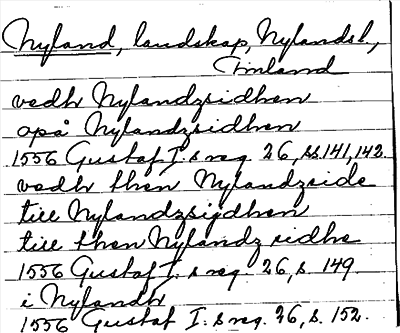 Nyland, landskap, Nylandsl,
Finland
vedh Nylandzsidhen
opå Nylandzsidhen
1556 Gustaf I:s reg. 26, ss. 141, 143.
vedh then Nylandzside
till Nylandzsiydhen
till then Nylandz sidhe
1556 Gustaf I:s reg. 26, s. 149.
i Nylandh
1556 Gustaf I:s reg. 26, s. 152.